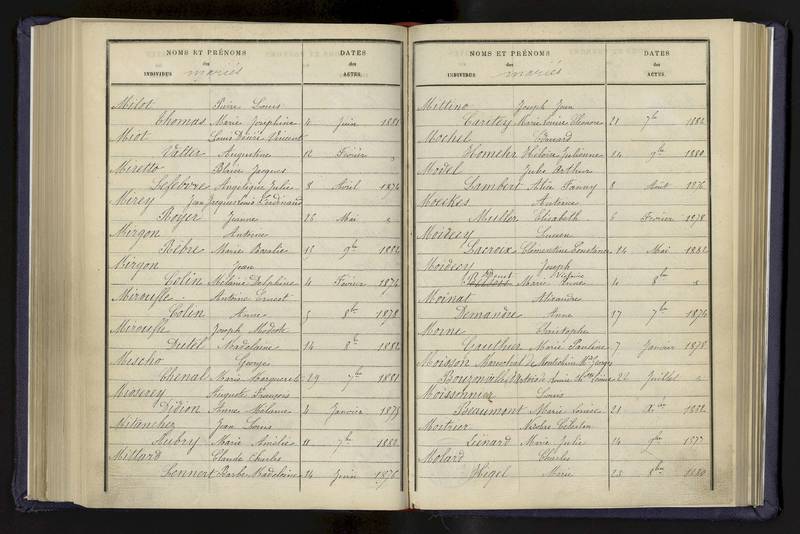 NOMS ET PRÉNOMS
des
INDIVIDUS mariés
DATES
des
ACTES.
Milot Pierre Louis
Thomas Marie Joséphine 4 Juin 1881
Miot Louis Désiré Vincent
Vatter Augustine 12 Février "
Miretto Blaise Jacques
Lefebvre Angélique Julie 8 Avril 1874
Mirey Jean Jacques Louis Ferdinand
Royer Jeanne 26 Mai "
Mirgon Antoine
Bibre Marie Rosalie 15 9bre 1882
Mirgon Jean
Colin Mélanie Delphine 4 Février 1874
Miroufle Antoine Ernest
Colin Anne 5 8bre 1878
Miroufle Joseph
Dutel Madelaine 14 8bre 1882
Mischo Georges
Chenal Marie Marguerite 29 7bre 1881
Auguste François
Didion Anne Mélanie 4 Janvier 1875
Mitancher Jean Louis
Aubry Marie Amélie 11 7bre 1880
Mittard Claude Charles
Lennert Barbe Madeleine 14 Juin 1876
NOMS ET PRÉNOMS
des
INDIVIDUS mariés
DATES
des
ACTES.
Mittino Joseph Jean
Caritey Marie Louise Eléonore 21 7bre 1882
Mochel Edouard
Homehr Héloïse Julienne 24 9bre 1880
Model Jules Arthur
Lambert Alice Fanny 8 Août 1876
Moeskes Antoine
Muller Elisabeth 6 Février 1878
Moidecy Lucien
Lacroix Clémentine Constance 24 Mai 1882
Moidecy Joseph
Marie Victoire Anne 4 8bre "
Moinat Alexandre
Demandre Anne 17 7bre 1874
Moine Christophe
Gauthier Marie Pauline 7 Janvier 1878
Moisson Maréchal de Montéclain Me Georges
Louise 22 Juillet "
Moissonnier Louis
Beaumont Marie Louise 21 Xbre 1882
Moitrier Nicolas Célestin
Liénard Marie Julie 14 1877
Molard Charles
Higel Marie 23 8bre 1880